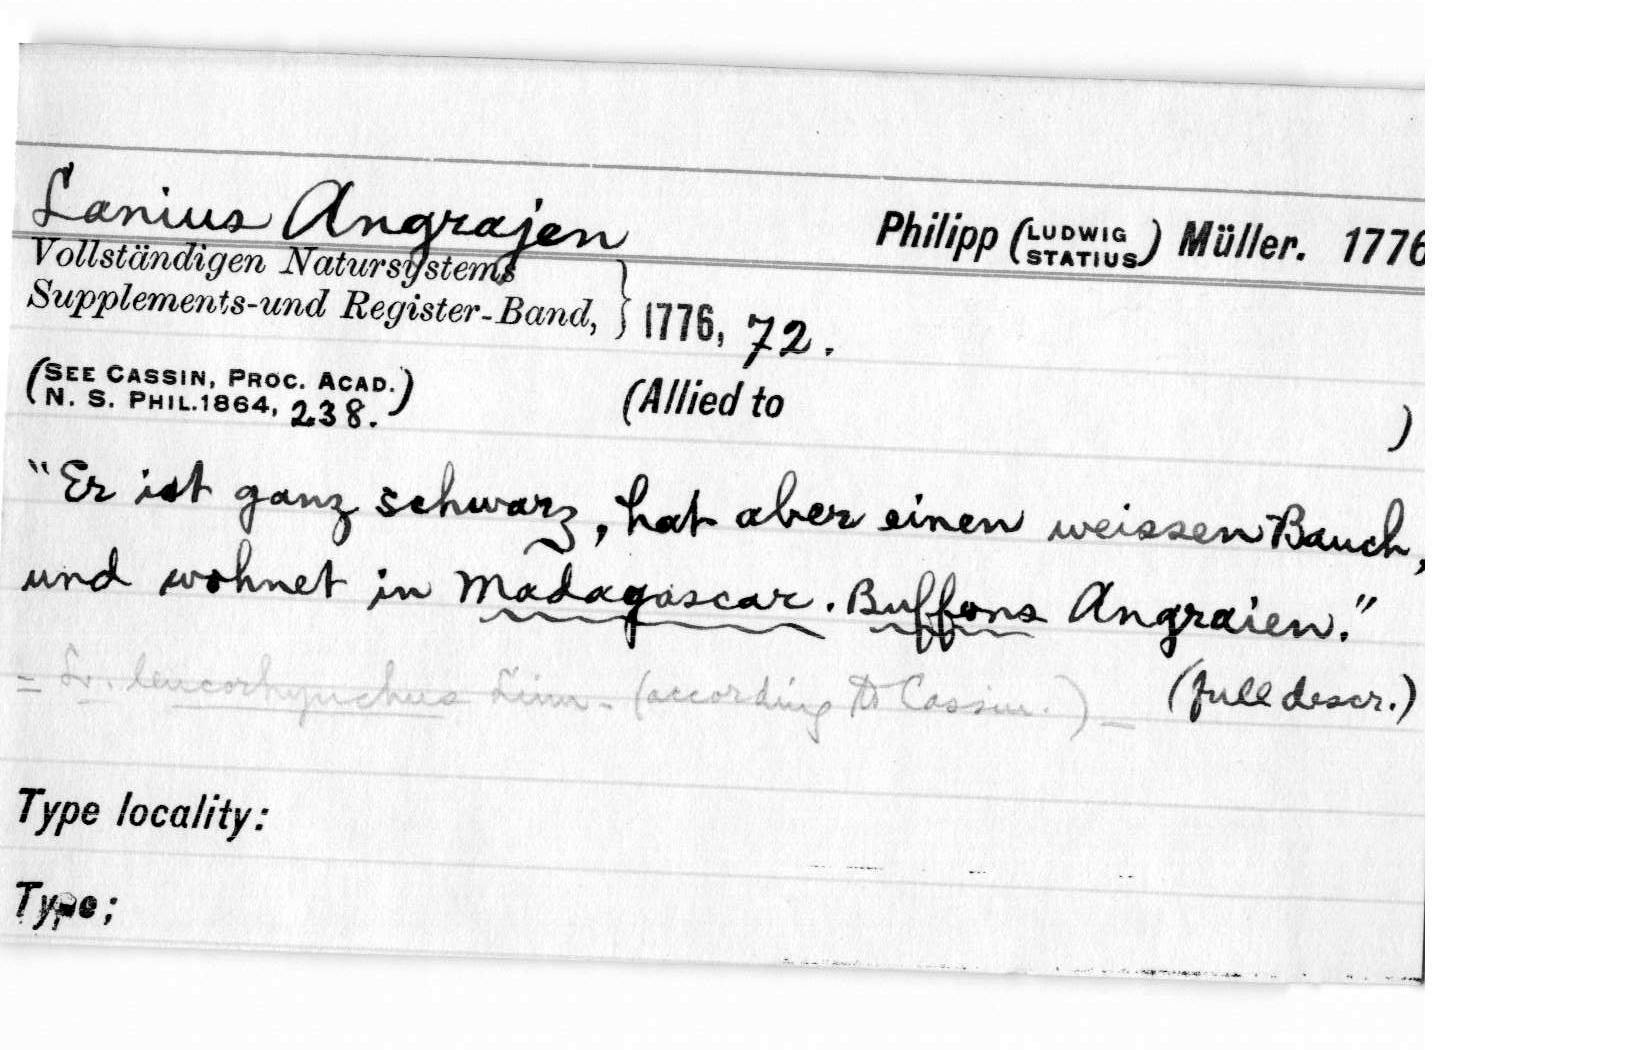 Lanius Angrajen Philipp (LUDWIG STATIUS) Müller. 1776
Vollständigen Natursystems
Supplements-und Register-Band, } 1776, 72.
(SEE CASSIN, PROC. ACAD.
N. S. PHIL. 1864, 238.) (Allied to )
"Er ist ganz schwarz, hat aber einen weissen Bauch,
und wohnet in Madagascar. Buffons Angraien."
= L. leucorhynchus Linn. (according to Cassin.) — (full descr.)
Type locality:
Type;